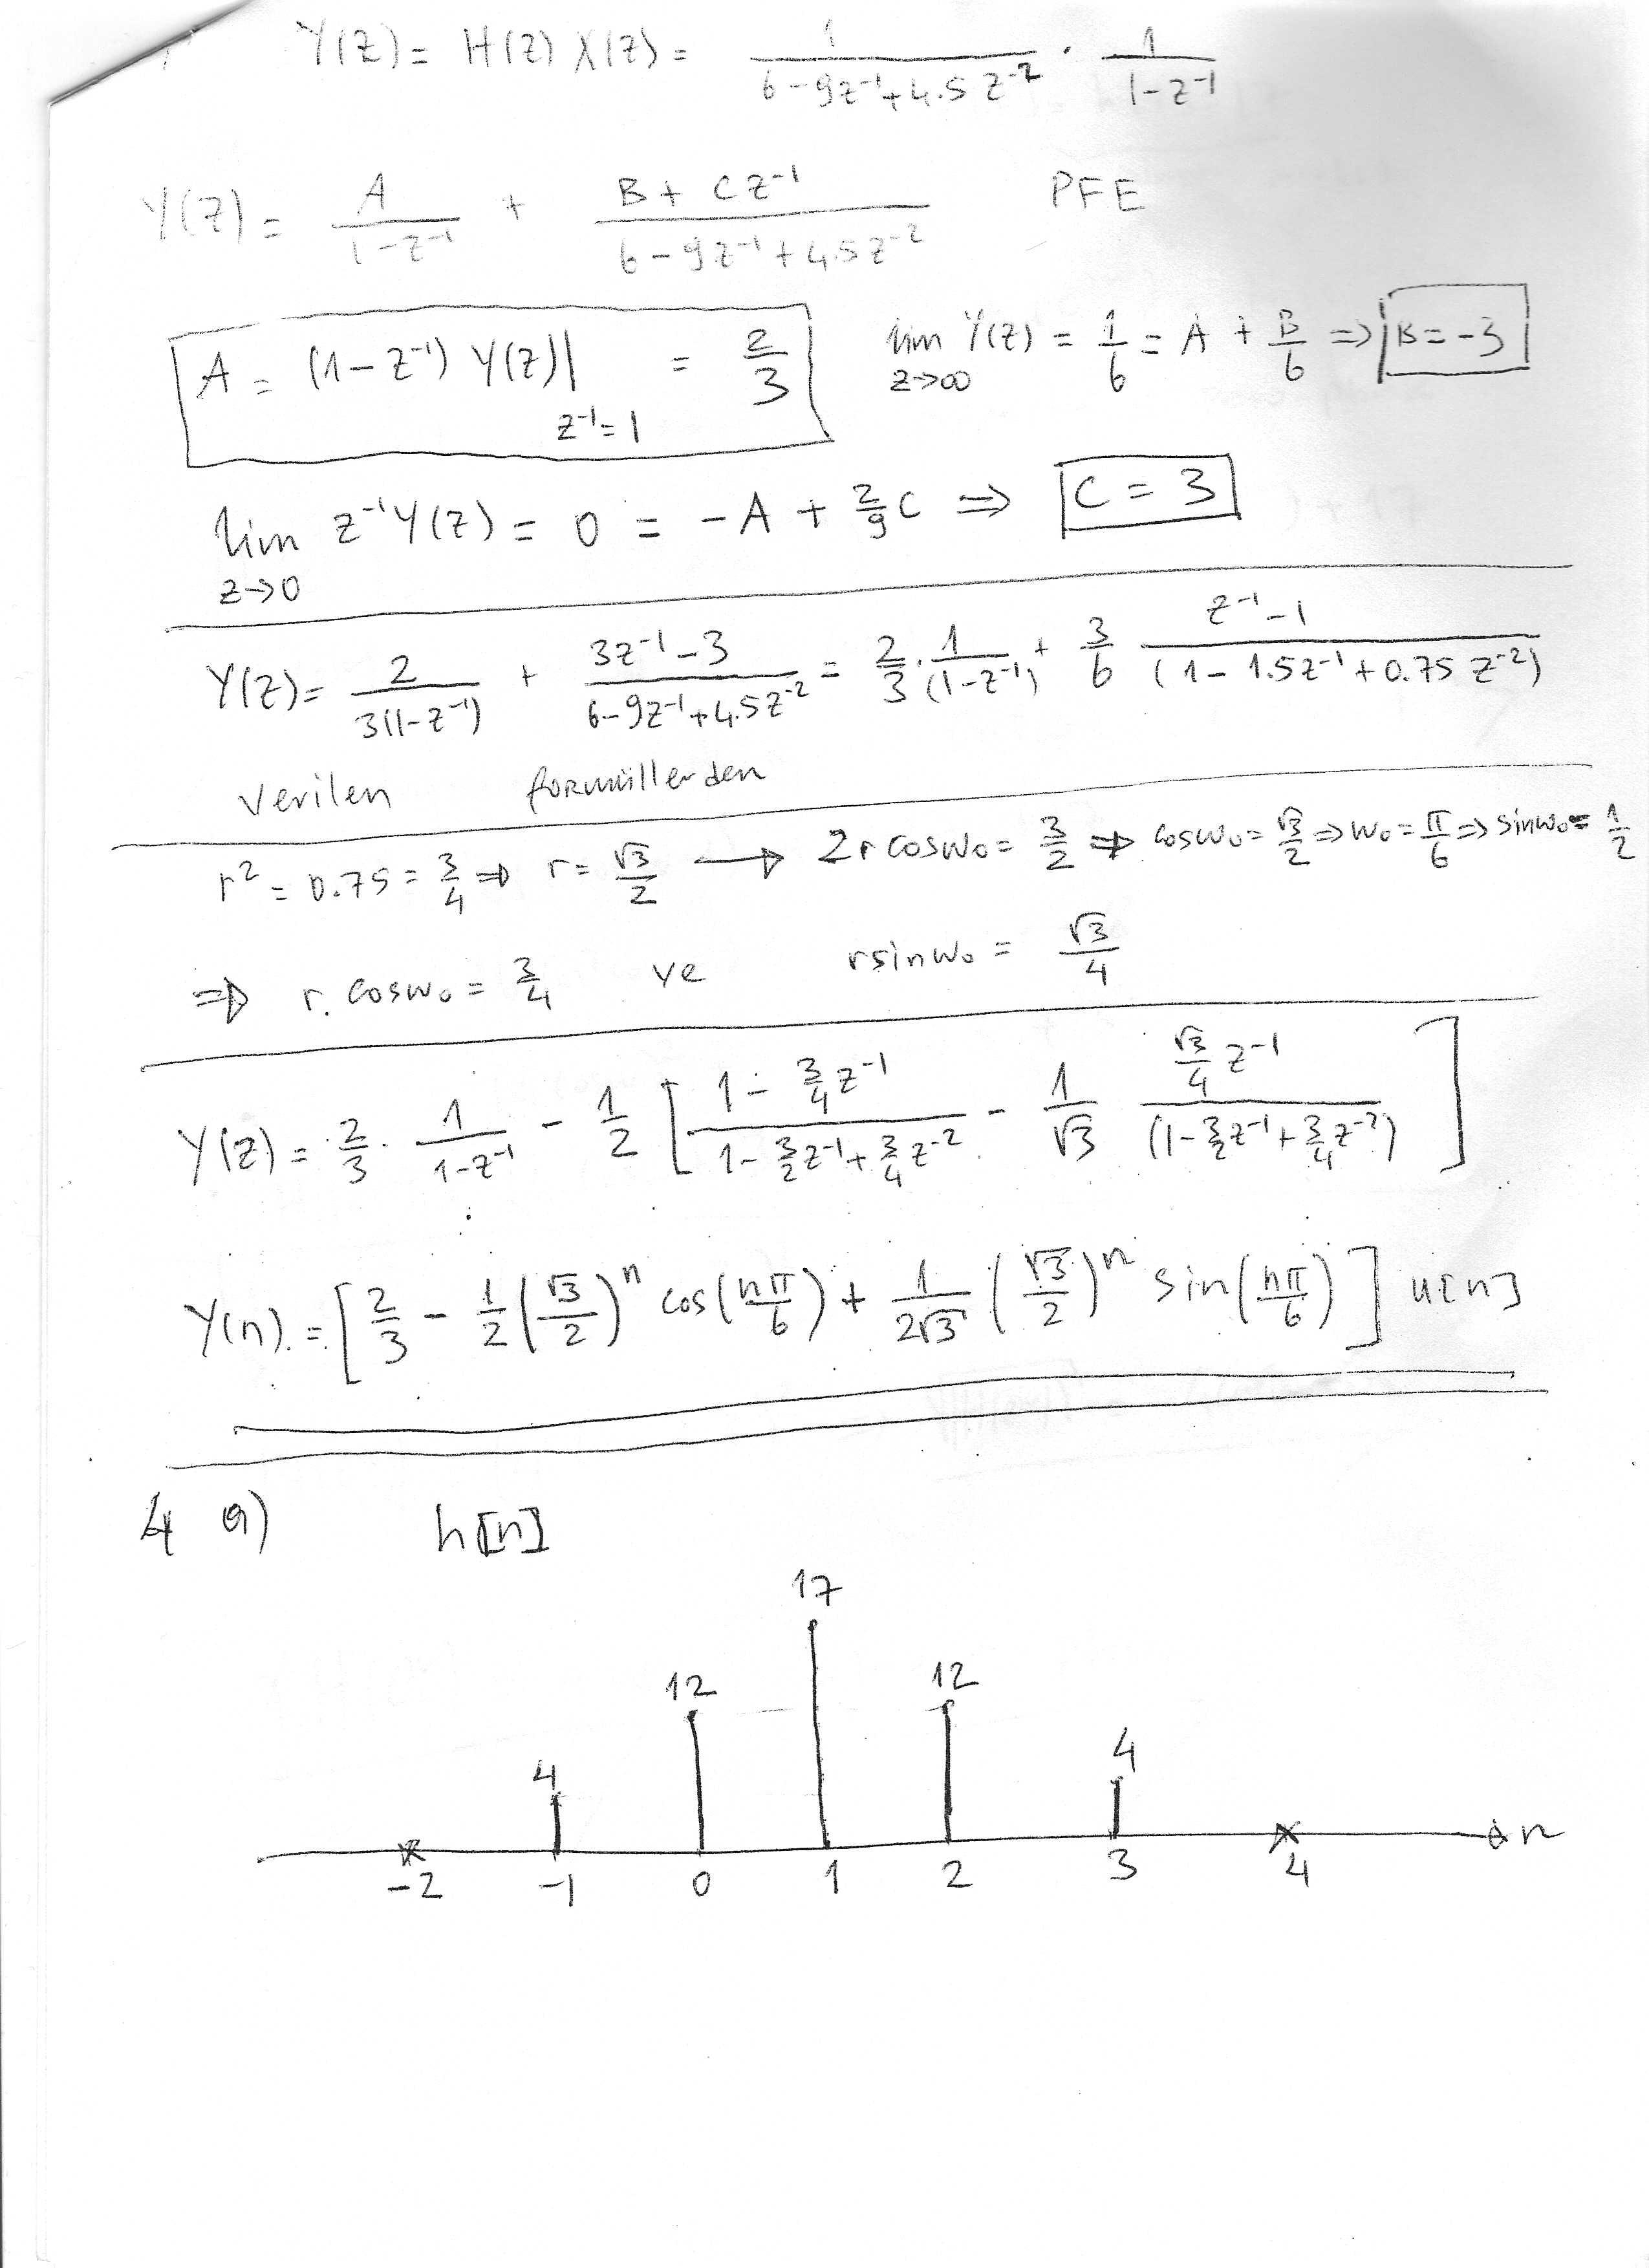 Y(z) = H(z) X(z) = 1/(6-9z⁻¹+4.5z⁻²) · 1/(1-z⁻¹)
Y(z) = A/(1-z⁻¹) + (B+Cz⁻¹)/(6-9z⁻¹+4.5z⁻²) PFE
A = (1-z⁻¹) Y(z)| z⁻¹=1 = 2/3 lim z→∞ Y(z) = 1/6 = A + B/6 ⇒ B=-3
lim z→0 z⁻¹Y(z) = 0 = -A + 2/9 C ⇒ C = 3
Y(z) = 2/(3(1-z⁻¹)) + (3z⁻¹-3)/(6-9z⁻¹+4.5z⁻²) = 2/3 · 1/(1-z⁻¹) + 3/6 (z⁻¹-1)/(1-1.5z⁻¹+0.75z⁻²)
Verilen formüllerden
r² = 0.75 = 3/4 ⇒ r = √3/2 → 2r cosw₀ = 3/2 ⇒ cosw₀ = √3/2 ⇒ w₀ = π/6 ⇒ sinw₀ = 1/2
⇒ r. cosw₀ = 3/4 ve rsinw₀ = √3/4
Y(z) = 2/3 · 1/(1-z⁻¹) - 1/2 [ (1-3/4 z⁻¹)/(1-3/2 z⁻¹+3/4 z⁻²) - 1/√3 (√3/4 z⁻¹)/(1-3/2 z⁻¹+3/4 z⁻²) ]
Y(n) = [ 2/3 - 1/2 (√3/2)ⁿ cos(nπ/6) + 1/(2√3) (√3/2)ⁿ sin(nπ/6) ] u[n]
4 a) h[n]
17
12 12
4 4
-2 -1 0 1 2 3 4 n